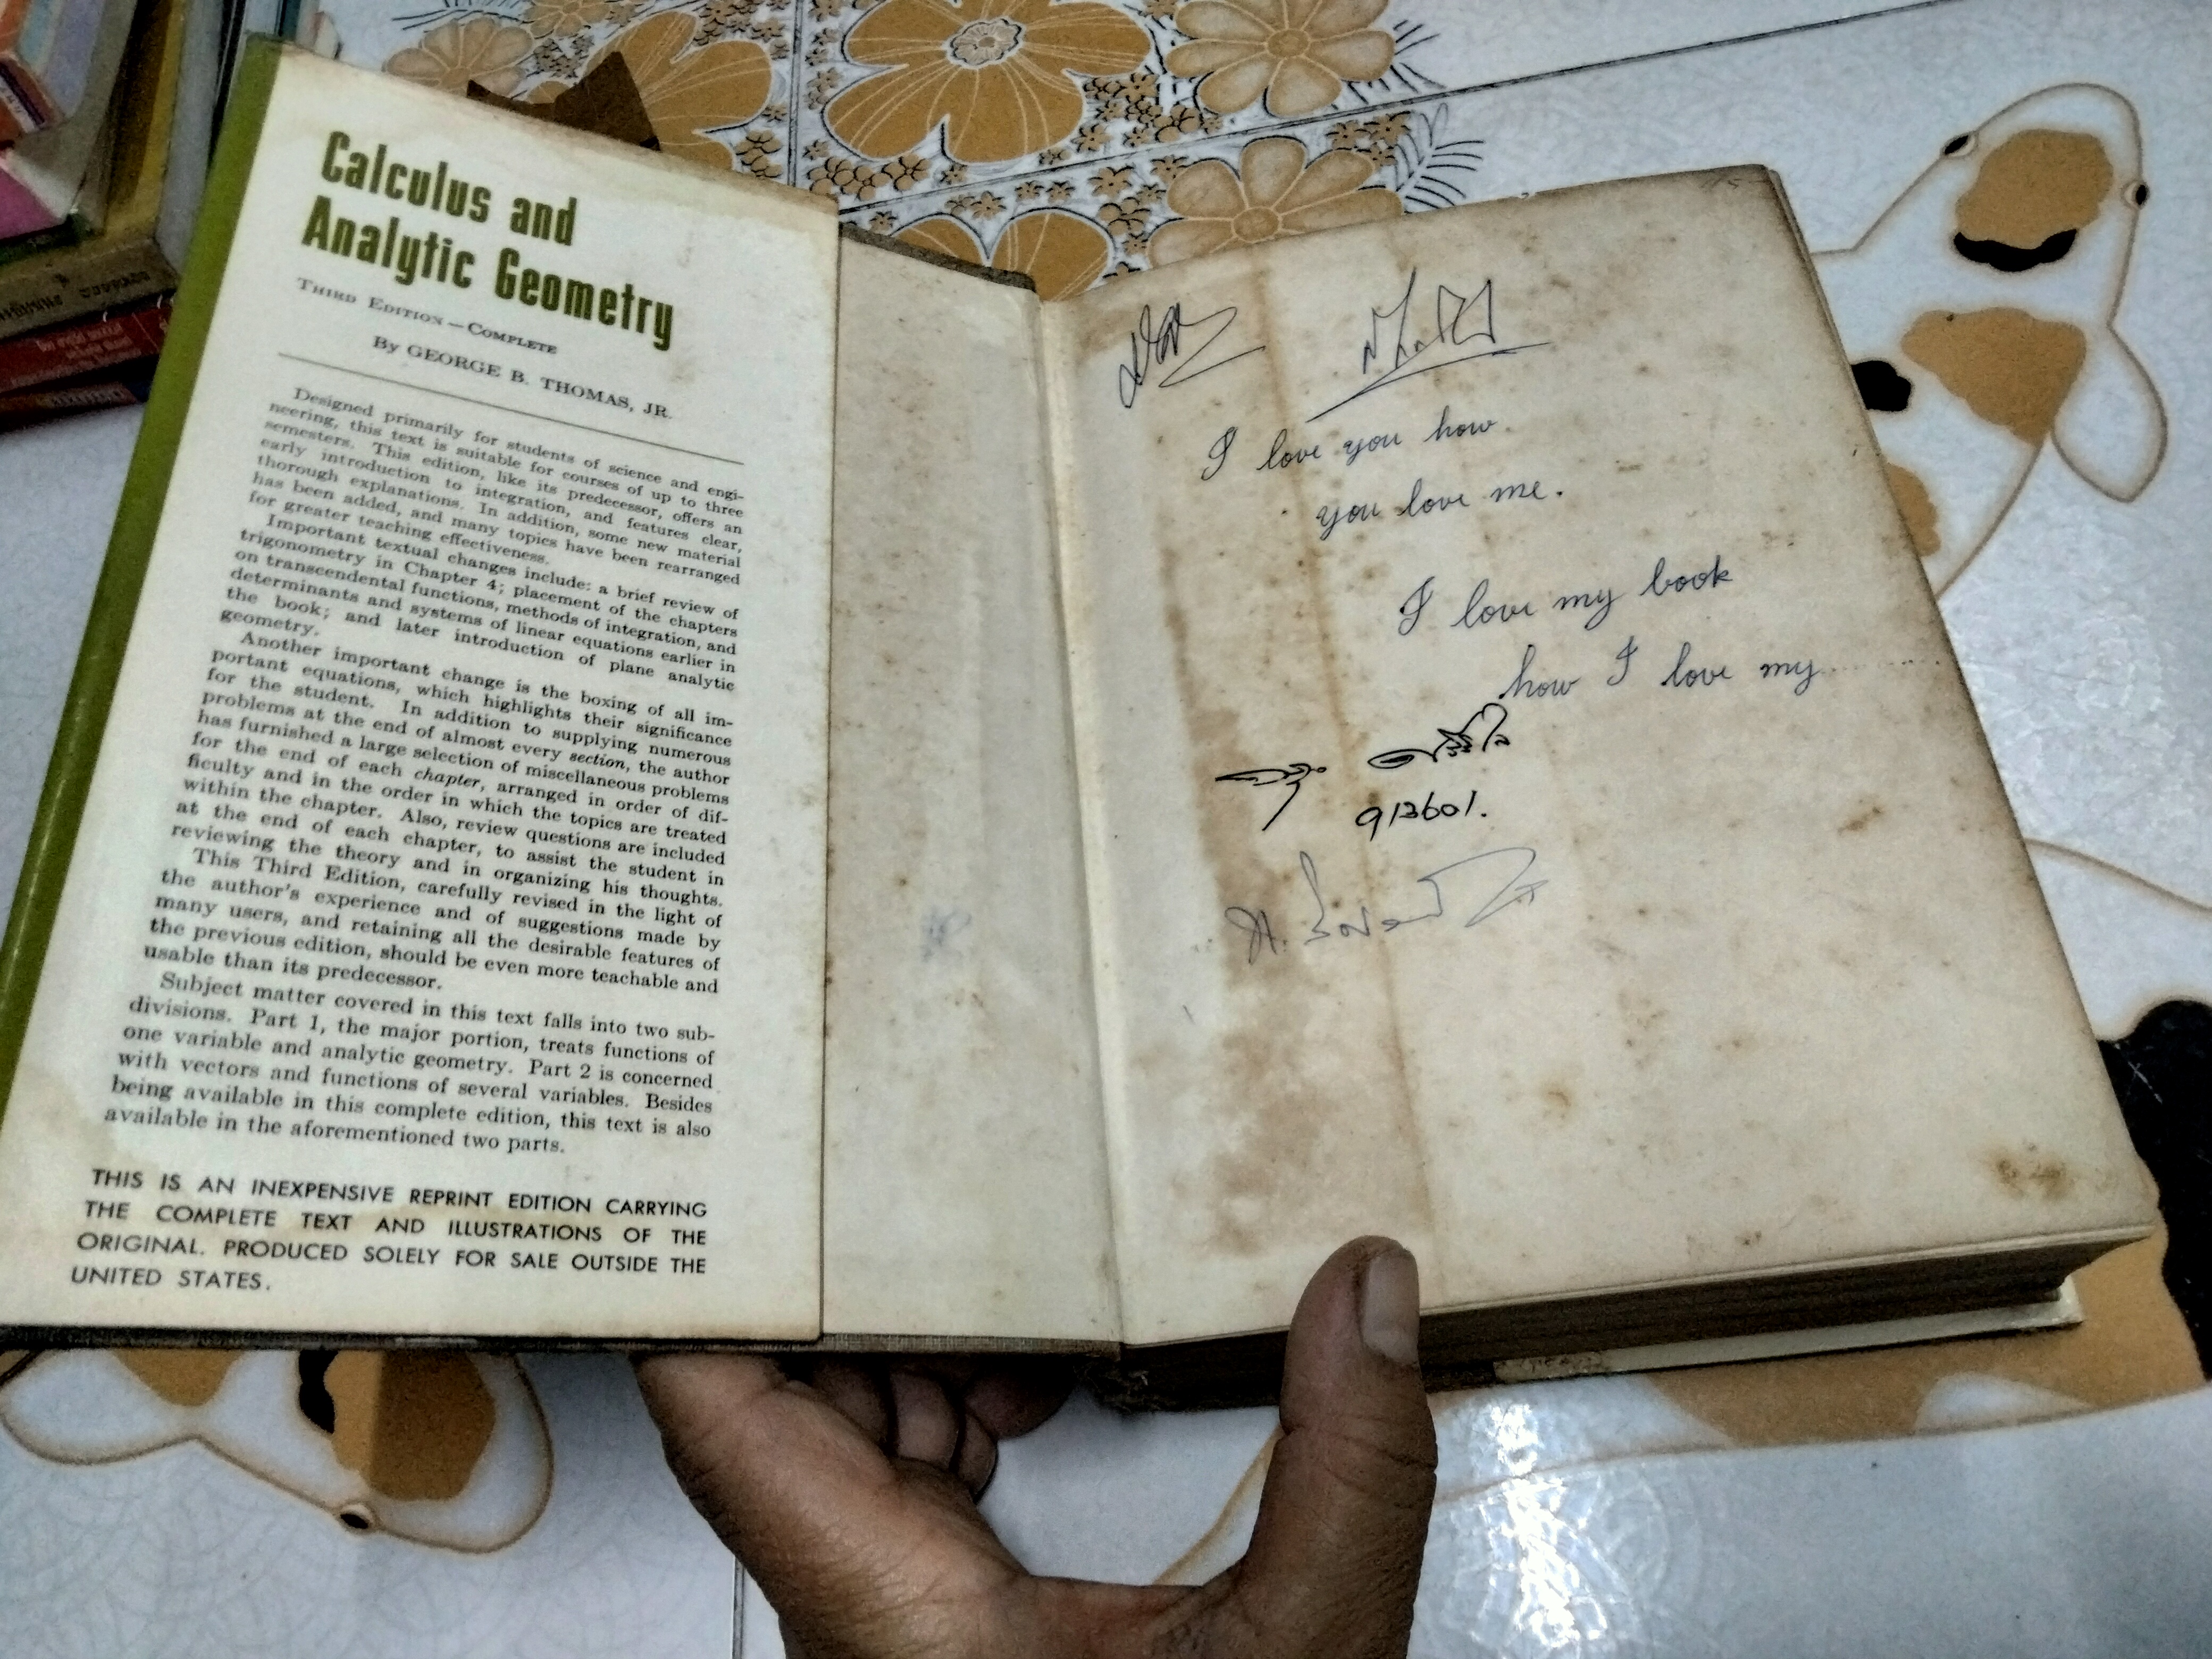 Calculus and
Analytic Geometry
THIRD EDITION — COMPLETE
By GEORGE B. THOMAS, JR.
Designed primarily for students of science and engi-
neering, this text is suitable for courses of up to three
semesters. This edition, like its predecessor, offers an
early introduction to integration, and features clear,
thorough explanations. In addition, some new material
has been added, and many topics have been rearranged
for greater teaching effectiveness.
Important textual changes include: a brief review of
trigonometry in Chapter 4; placement of the chapters
on transcendental functions, methods of integration, and
determinants and systems of linear equations earlier in
the book; and later introduction of plane analytic
geometry.
Another important change is the boxing of all im-
portant equations, which highlights their significance
for the student. In addition to supplying numerous
problems at the end of almost every section, the author
has furnished a large selection of miscellaneous problems
for the end of each chapter, arranged in order of dif-
ficulty and in the order in which the topics are treated
within the chapter. Also, review questions are included
at the end of each chapter, to assist the student in
reviewing the theory and in organizing his thoughts.
This Third Edition, carefully revised in the light of
the author's experience and of suggestions made by
many users, and retaining all the desirable features of
the previous edition, should be even more teachable and
usable than its predecessor.
Subject matter covered in this text falls into two sub-
divisions. Part 1, the major portion, treats functions of
one variable and analytic geometry. Part 2 is concerned
with vectors and functions of several variables. Besides
being available in this complete edition, this text is also
available in the aforementioned two parts.
THIS IS AN INEXPENSIVE REPRINT EDITION CARRYING
THE COMPLETE TEXT AND ILLUSTRATIONS OF THE
ORIGINAL. PRODUCED SOLELY FOR SALE OUTSIDE THE
UNITED STATES.
I love you how
you love me.
I love my book
how I love my..........
913601.